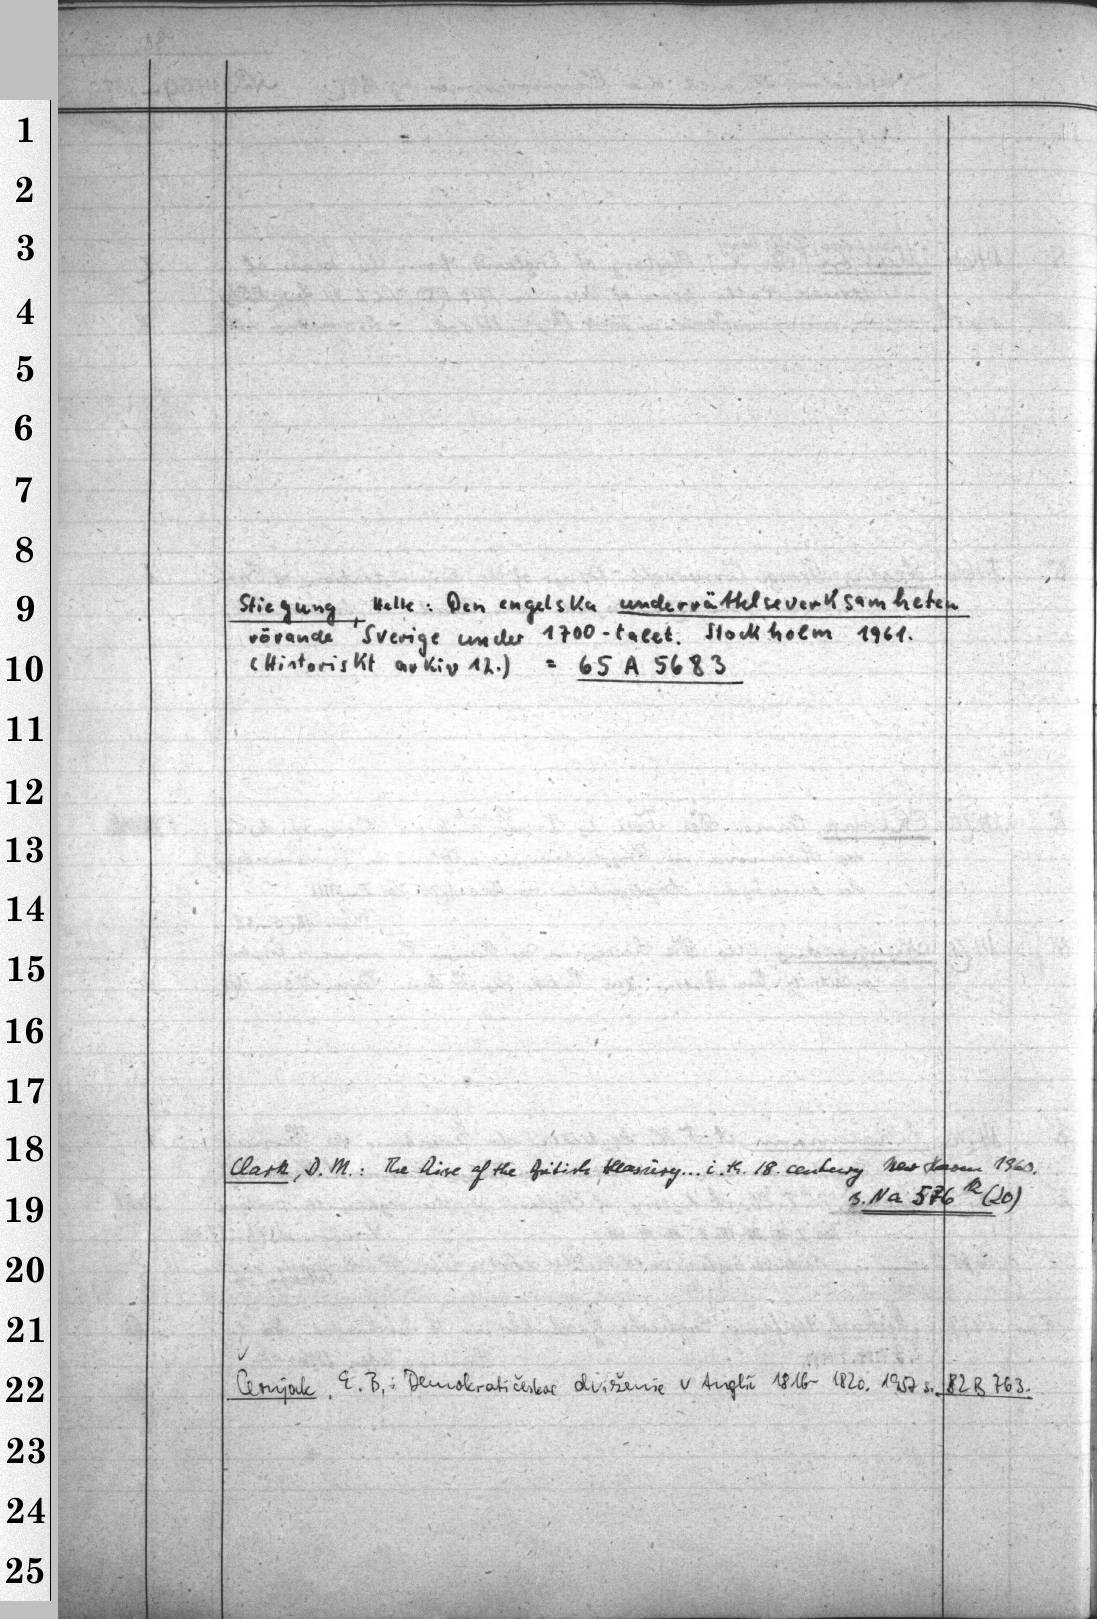 1
2
3
4
5
6
7
8
9
Stiegung, Helle: Den engelska underrättelseverksamheten
rörande Sverige under 1700-talet. Stockholm 1961.
10
(Historiskt arkiv 12.) = 65 A 5683
11
12
13
14
15
16
17
18
Clark, D. M.: The Rise of the British treasury... i. th. 18. century New Haven 1960.
19
s. Na 576 k (20)
20
21
22
Černjak, E. B.: Demokratičeskoe dviženie v Anglii 1816-1820. 1957 s. 82 B 763.
23
24
25